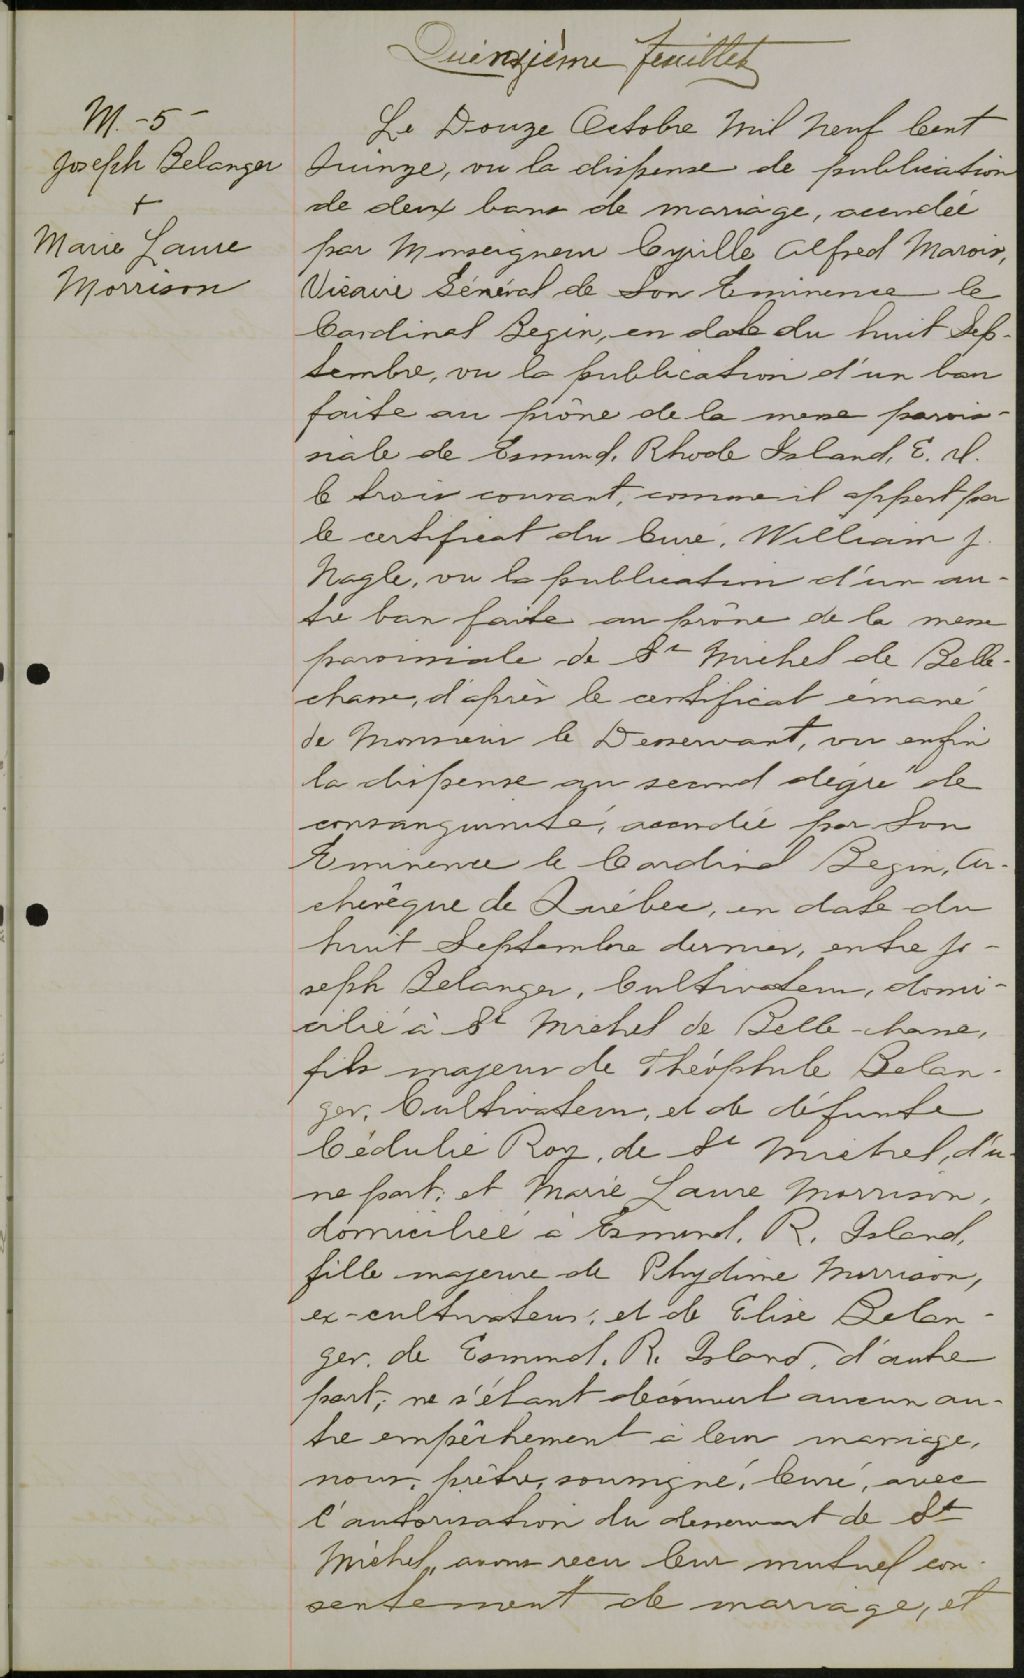 Quinzième feuillet
M. - 5 -
Joseph Belanger
+
Marie Laure
Morrison
Le Douze Octobre Mil Neuf Cent
Quinze, vu la dispense de publication
de deux bans de mariage, accordée
par Monseigneur Cyrille Alfred Marois,
Vicaire Général de Son Eminence le
Cardinal Begin, en date du huit Sep-
tembre, vu la publication d'un ban
faite au prône de la messe parois-
siale de Esmund, Rhode Island, E. U.
le trois courant, comme il appert par
le certificat du Curé, William J.
Nagle, vu la publication d'un au-
tre ban faite au prône de la messe
paroissiale de St Michel de Belle-
chasse, d'après le certificat émané
de Monsieur le Desservant, vu enfin
la dispense au second dégré de
consanguinité, accordée par Son
Eminence le Cardinal Begin, Ar-
chevêque de Québec, en date du
huit Septembre dernier, entre Jo-
seph Belanger, Cultivateur, domi-
cilié à St Michel de Belle-chasse,
fils majeur de Théophile Belan-
ger, Cultivateur, et de défunte
Cédulie Roy, de St Michel, d'u-
ne part; et Marie Laure Morrison,
domiciliée à Esmund, R. Island,
fille majeure de Phydime Morrison,
ex-cultivateur, et de Elise Belan-
ger, de Esmund, R. Island, d'autre
part; ne s'étant découvert aucun au-
tre empêchement à leur mariage,
nous, prêtre, soussigné, Curé, avec
l'autorisation du desservant de St
Michel, avons reçu leur mutuel con-
sentement de mariage, et